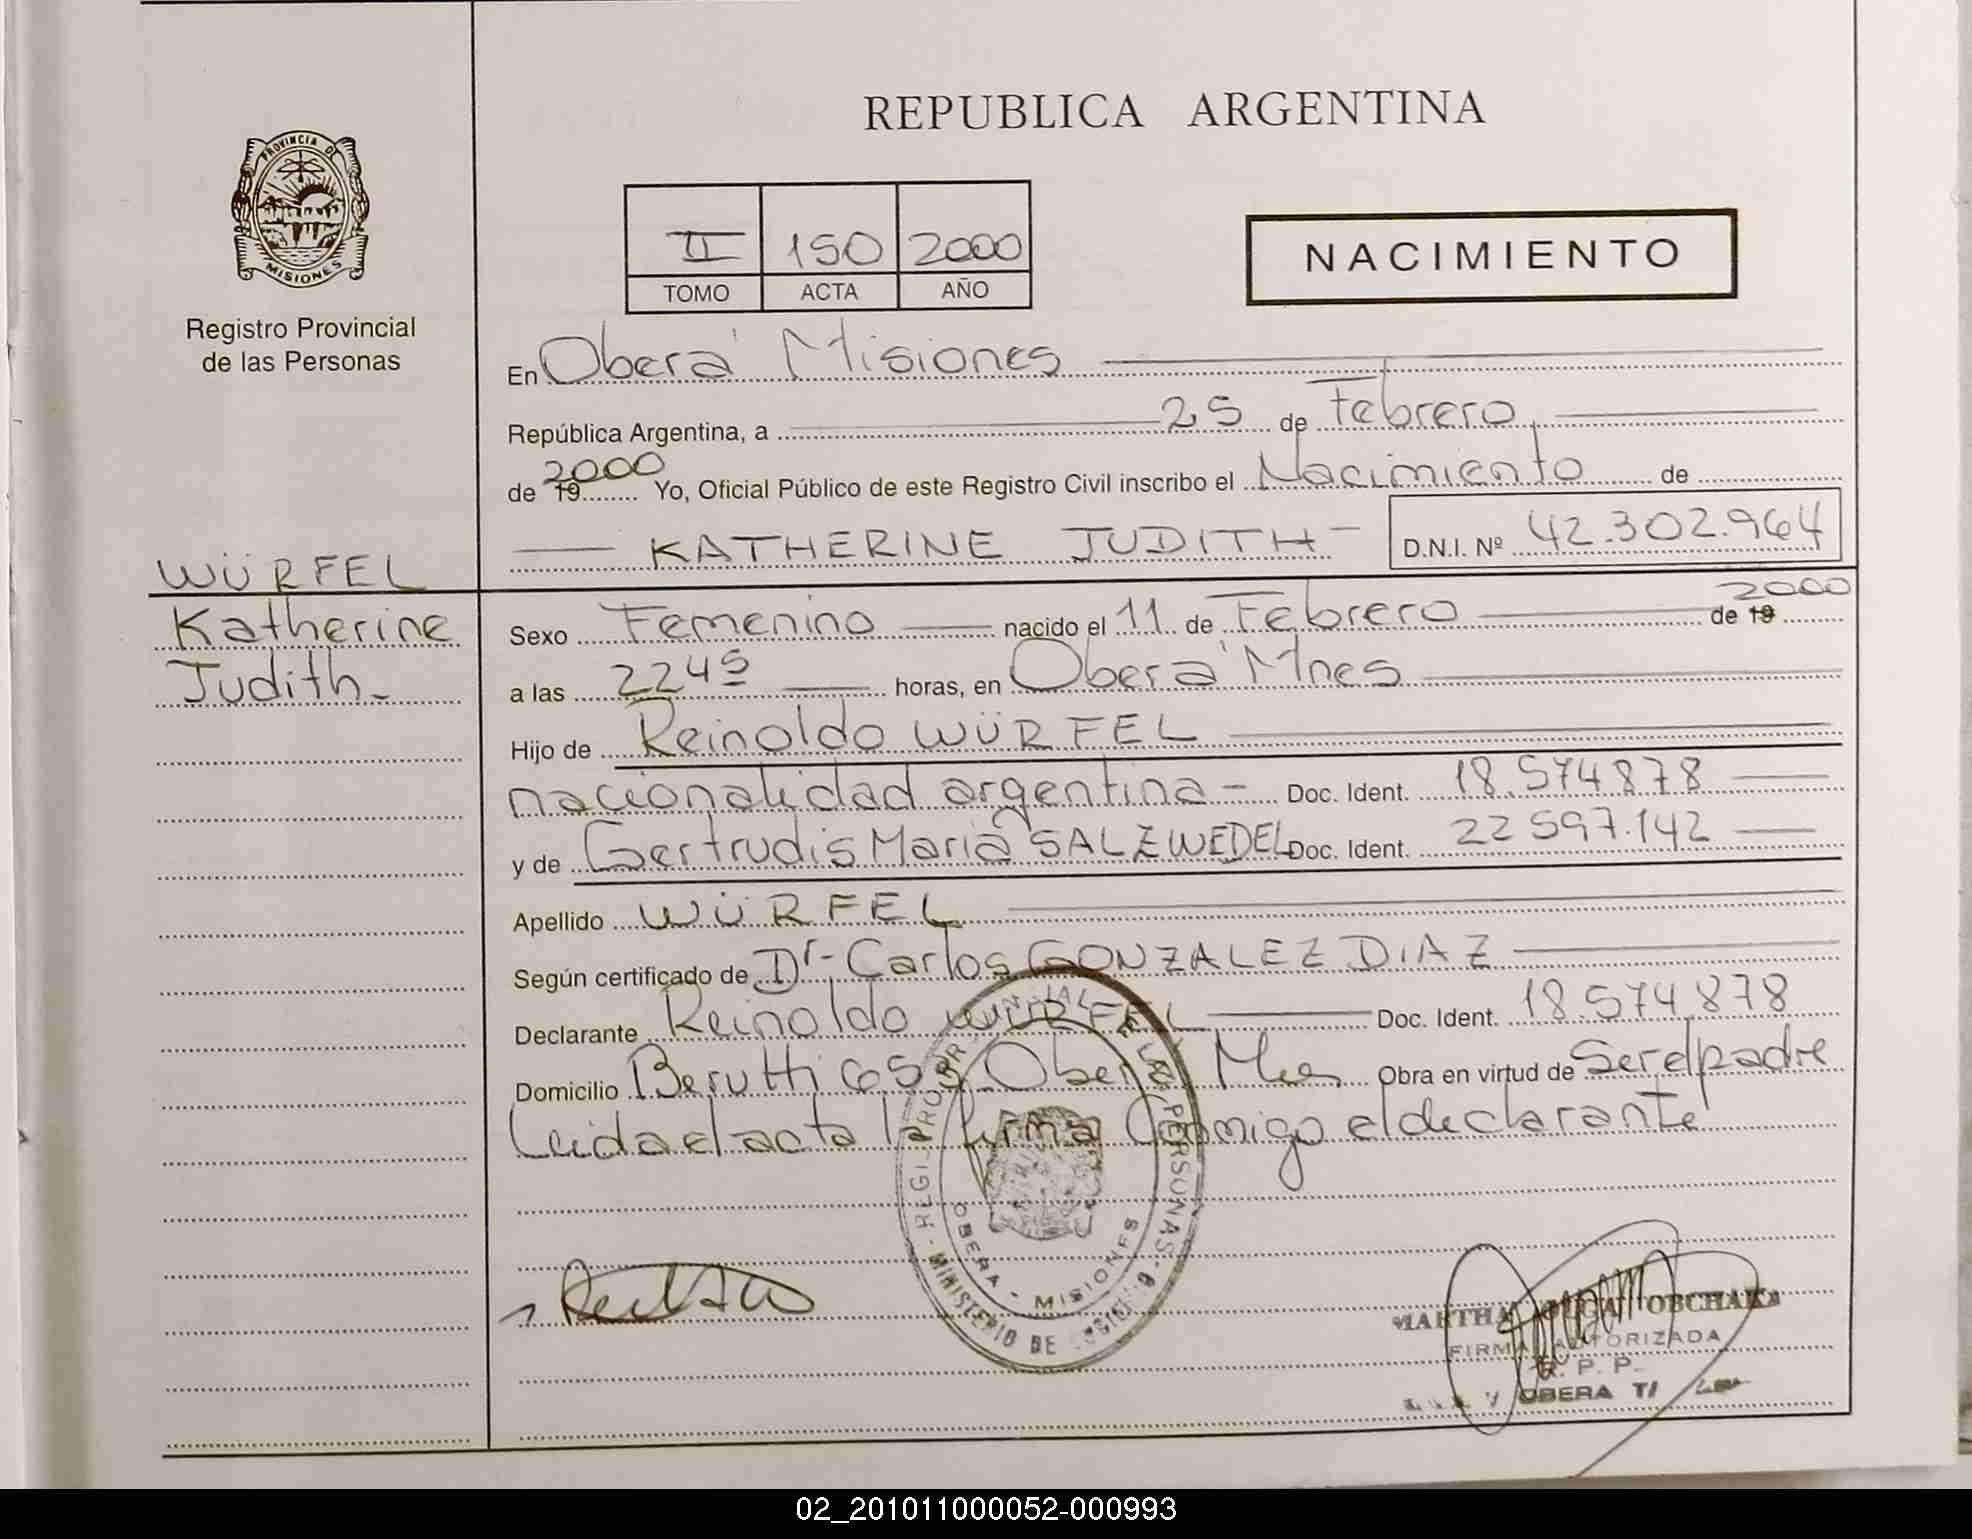 REPUBLICA ARGENTINA
PROVINCIA DE
MISIONES
Registro Provincial
de las Personas
II 150 2000
TOMO ACTA AÑO
NACIMIENTO
En Oberá Misiones
República Argentina, a 25 de Febrero
de 19 2000 Yo, Oficial Público de este Registro Civil inscribo el Nacimiento de
KATHERINE JUDITH - D.N.I. Nº 42.302.964
WÜRFEL
Katherine
Judith-
Sexo Femenino nacido el 11 de Febrero de 19 2000
a las 2245 horas, en Oberá Mnes
Hijo de Reinoldo WÜRFEL
nacionalidad argentina - Doc. Ident. 18.574878
y de Gertrudis Maria SALZWEDEL Doc. Ident. 22 597.142
Apellido WÜRFEL
Según certificado de Dr- Carlos GONZALEZ DIAZ
Declarante Reinoldo WÜRFEL Doc. Ident. 18.574.878
Domicilio Berutti Oberá Obra en virtud de Ser el padre
Leida el acta la firma Conmigo el declarante
MINISTERIO DE
OBERA - MISIONES
PERSONAS
MARTHA OBCHAKA
FIRMA AUTORIZADA
R. P. P.
OBERA
02_201011000052-000993